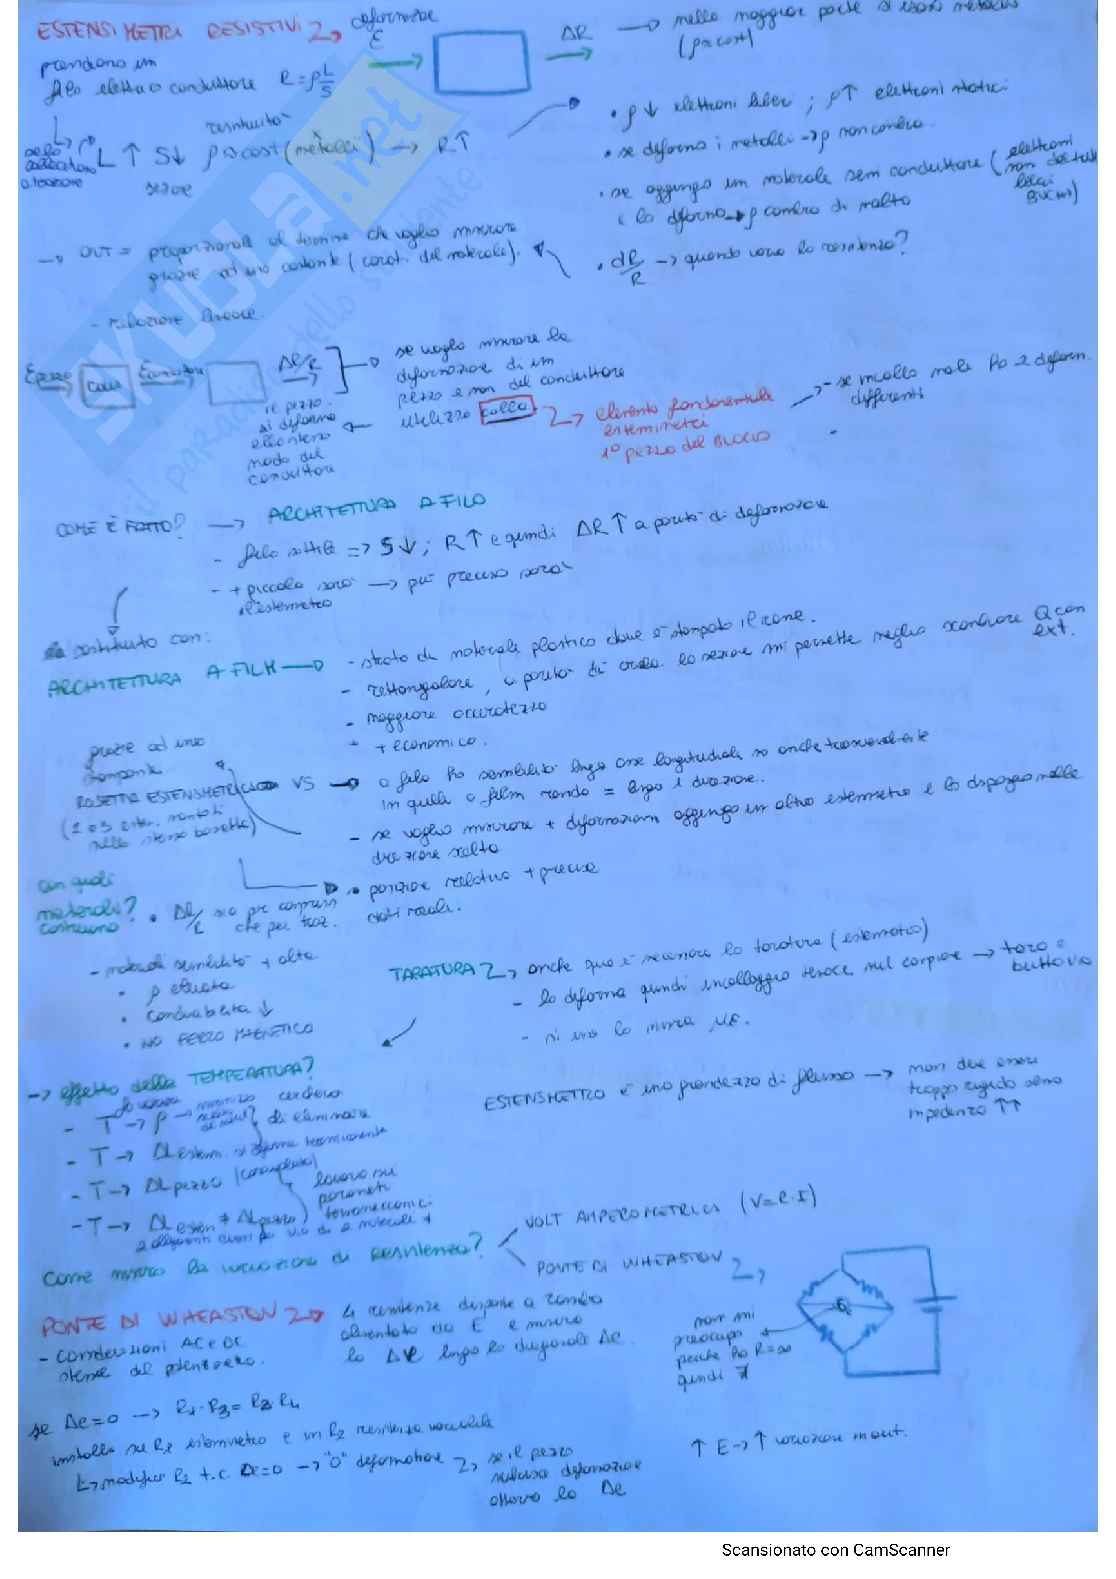 ESTENSIMETRI RESISTIVI
deformazione
ε
ΔR → nella maggior parte si usano metalli
(ρ ≈ cost)
prendono un
filo elettrico conduttore R = ρ L/S
resistività
L ↑ S↓ ρ ≈ cost (metalli) → R↑
sezione
• ρ ↓ elettroni liberi ; ρ↑ elettroni statici
• se deformo i metalli → ρ non cambia.
• se aggiungo un materiale semi conduttore (elettroni non del tutto liberi BUCHI)
e lo deformo → ρ cambia di molto
• dR/R → quando vario la resistenza?
→ OUT = proporzionale al termine che voglio misurare
grazie ad una costante (caratt. del materiale).
- relazione lineare.
ε pezzo → COLLA → ε conduttore → ΔR/R
→ se voglio misurare la
deformazione di un
pezzo e non del conduttore
utilizzo colla
il pezzo
si deforma
allo stesso
modo del
conduttore
elemento fondamentale
estensimetri
1° pezzo del BLOCCO
→ - se incollo male ho 2 deform.
differenti
COME È FATTO? → ARCHITETTURA A FILO
- filo sottile => S↓ ; R↑ e quindi ΔR↑ a parità di deformazione
- + piccolo sarà → più preciso sarà
l'estensimetro
sostituito con:
ARCHITETTURA A FILM → - strato di materiale plastico dove è stampato il rame.
- rettangolare, a parità di area la sezione mi permette meglio scambiare Q con
ext.
- maggiore accuratezza
+ economico.
grazie ad una
stampante
ROSETTA ESTENSIMETRICA VS → a filo ho sensibilità lungo asse longitudinale ma anche trasversalmente
(2 o 3 esten. montati
nella stessa basetta)
in quella a film rendo = lungo 1 direzione.
- se voglio misurare + deformazioni aggiungo un altro estensimetro e lo dispongo nella
direzione scelta
• posizione relativa + precisa
dati reali.
con quali
materiali?
costruiamo
• ΔL/L sia per compress.
che per traz.
- materiali sensibilità + alta
• ρ elevata
• conducibilità ↓
• NO FERRO MAGNETICO
TARATURA → anche qua è necessaria la taratura (estensimetro)
- lo deforma quindi incollaggio veloce sul campione → taro e
buttavo
→ effetto della TEMPERATURA?
ESTENSIMETRO è una grandezza di flusso → non deve essere
troppo rigido sennò
impedenza ↑↑
- T → ρ →
cerchero
di eliminare
- T → ΔL estens. si deforma termicamente
- T → ΔL pezzo
- T → ΔL esten ≠ ΔL pezzo
lavoro sui
parametri
termomeccanici
Come misuro la variazione di Resistenza?
VOLT AMPEROMETRICA (V=R·I)
PONTE DI WHEASTON
PONTE DI WHEASTON → 4 resistenze disposte a rombo
alimentato da E e misuro
la ΔV lungo la diagonale Δe.
- considerazioni AC e DC
stesse del potenziometro.
G
non mi
preoccupo
perché ho R=∞
quindi
se Δe=0 → R1·R3 = R2·R4
installo su R1 estensimetro e un R2 resistenza variabile
↳ modifico R2 t.c. Δe=0 → "0" deformazione
se il pezzo
subisce deformazione
ottengo lo Δe
↑ E → ↑ variazione in out.
SKUOLA.net
il paradiso dello studente
Scansionato con CamScanner